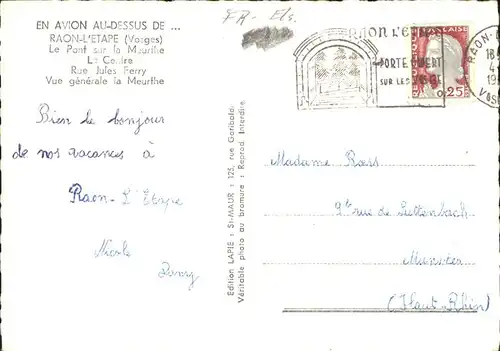 EN AVION AU-DESSUS DE ...
RAON-L'ETAPE (Vosges)
Le Pont sur la Meurthe
Le Centre
Rue Jules Ferry
Vue générale la Meurthe
FR - Els.
RAON L'ETAPE
PORTE OUVERTE
SUR LES VOSGES
FRANÇAISE
0,25
RAON-
18
4-
19
VOSGES
Bien le bonjour
de nos vacances à
Raon-L'Etape
Nicole
Edition LAPIE : St-MAUR : 125, rue Garibaldi
Véritable photo au bromure : Reprod. Interdite
Madame Roess
9 rue de Luttenbach
Munster
(Haut-Rhin)